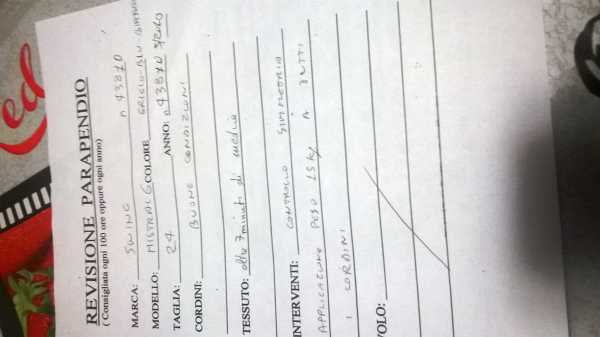 REVISIONE PARAPENDIO
( Consigliata ogni 100 ore oppure ogni anno)
MARCA: SWING n 43870
MODELLO: MISTRAL 6 COLORE GRIGIO-BLU-
TAGLIA: 24 ANNO:
CORDINI: BUONE CONDIZIONI
TESSUTO: oltre 7 minuti di media
INTERVENTI: CONTROLLO SIMMETRIA
APPLICAZIONE PESO 15 Kg A TUTTI
I CORDINI
VOLO:
ed